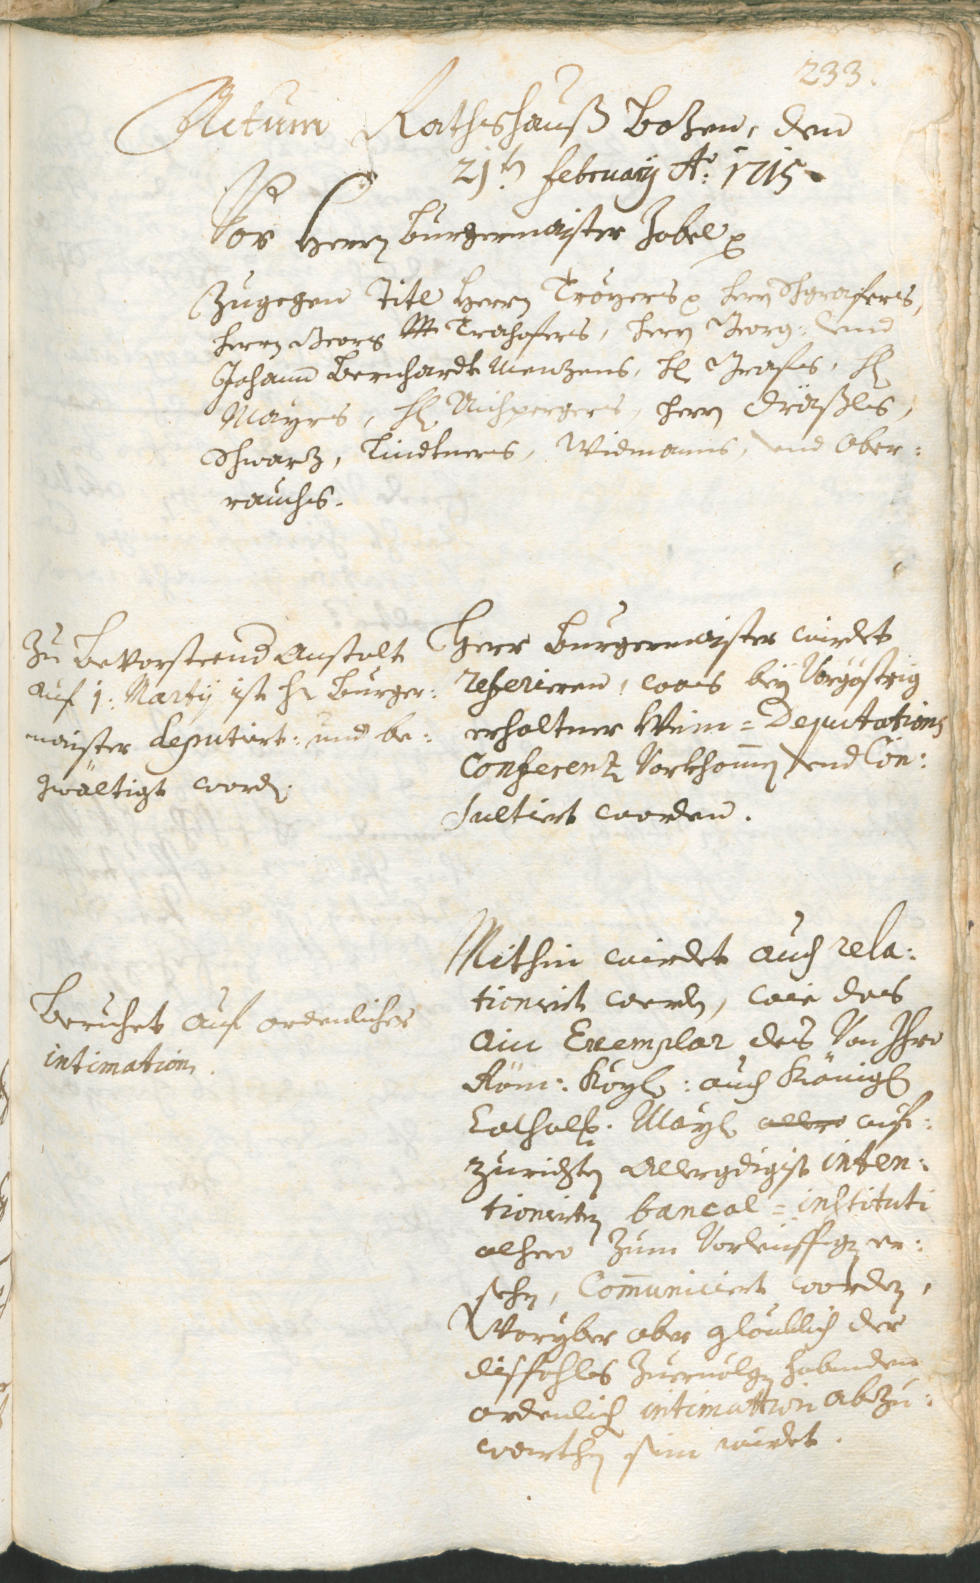 233.
Actum Rathshauß Bozen, den
21t: february Ao: 1715
Vor Herrn Burgermaister Zobel p
Zugegen Titl Herrn Troyers p herrn Schgrafers,
herrn Georg Trahofers, herrn Georg: und
Johann Bernhardt Menzens, H: Grafs, H:
Mayrs, H: Aichpergers, herrn Dräxls,
Schwarz, Lindtners, Widmanns, und Ober:
rauchs.
Zu bevorsteend Anstalt
auf 1: Marty ist H: Burger:
maister deputiert: und be:
gwältigt word:
Herr Burgermaister wirdet
referieren, was bey Vorgöstrig
erhaltner Wein=Deputations
Conferenz Vorkhomen und Con:
sultiert worden.
Beruhet auf ordenlicher
intimation.
Mithin wirdet auch rela:
tioniert werdn, wie das
ain Exemplar des Von Ihro
Röm: Kayl: auch Königl
Catholl: Mayl: aufe:
zurichten allergdigist inten:
tionirten bancal=instituti
alhero zum Vorleiffign er:
sehn, Communiciert worden,
Woryber aber gloublich der
disfahls zuervolgn habenden
ordenlich intimation abzu:
warthn sein wirdet.